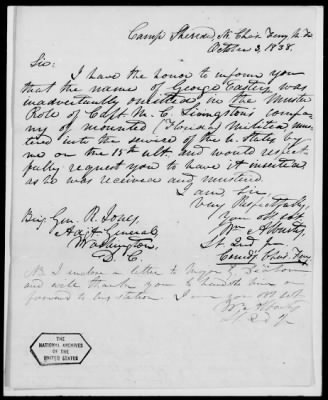 Camp Sherrod, N. Chat. Ferry M. Fa
October 3, 1838.
Sir:
I have the honor to inform you
that the name of George Castin was
inadvertantly omitted, on the Muster
Role of Capt. N. C. Livingstons compa-
ny of mounted (Florida) Militia mus-
tered into the service of the U. States, by
me on the 15th ult. and would respect-
fully request you to have it inserted
as he was received and mustered
I am Sir,
Very Respectfully,
Your obt. Sv't
Wm Alburtis
Lt 2nd Inf
Comdg. Chat. Ferry
Brig. Gen. R. Jones,
Adjt General
Washington,
D. C.
N.B. I inclose a letter to Major
and will thank you to hand it him or
forward to his station. I am your obt. svt
Wm Alburtis
Lt 2d If
THE
NATIONAL ARCHIVES
OF THE
UNITED STATES